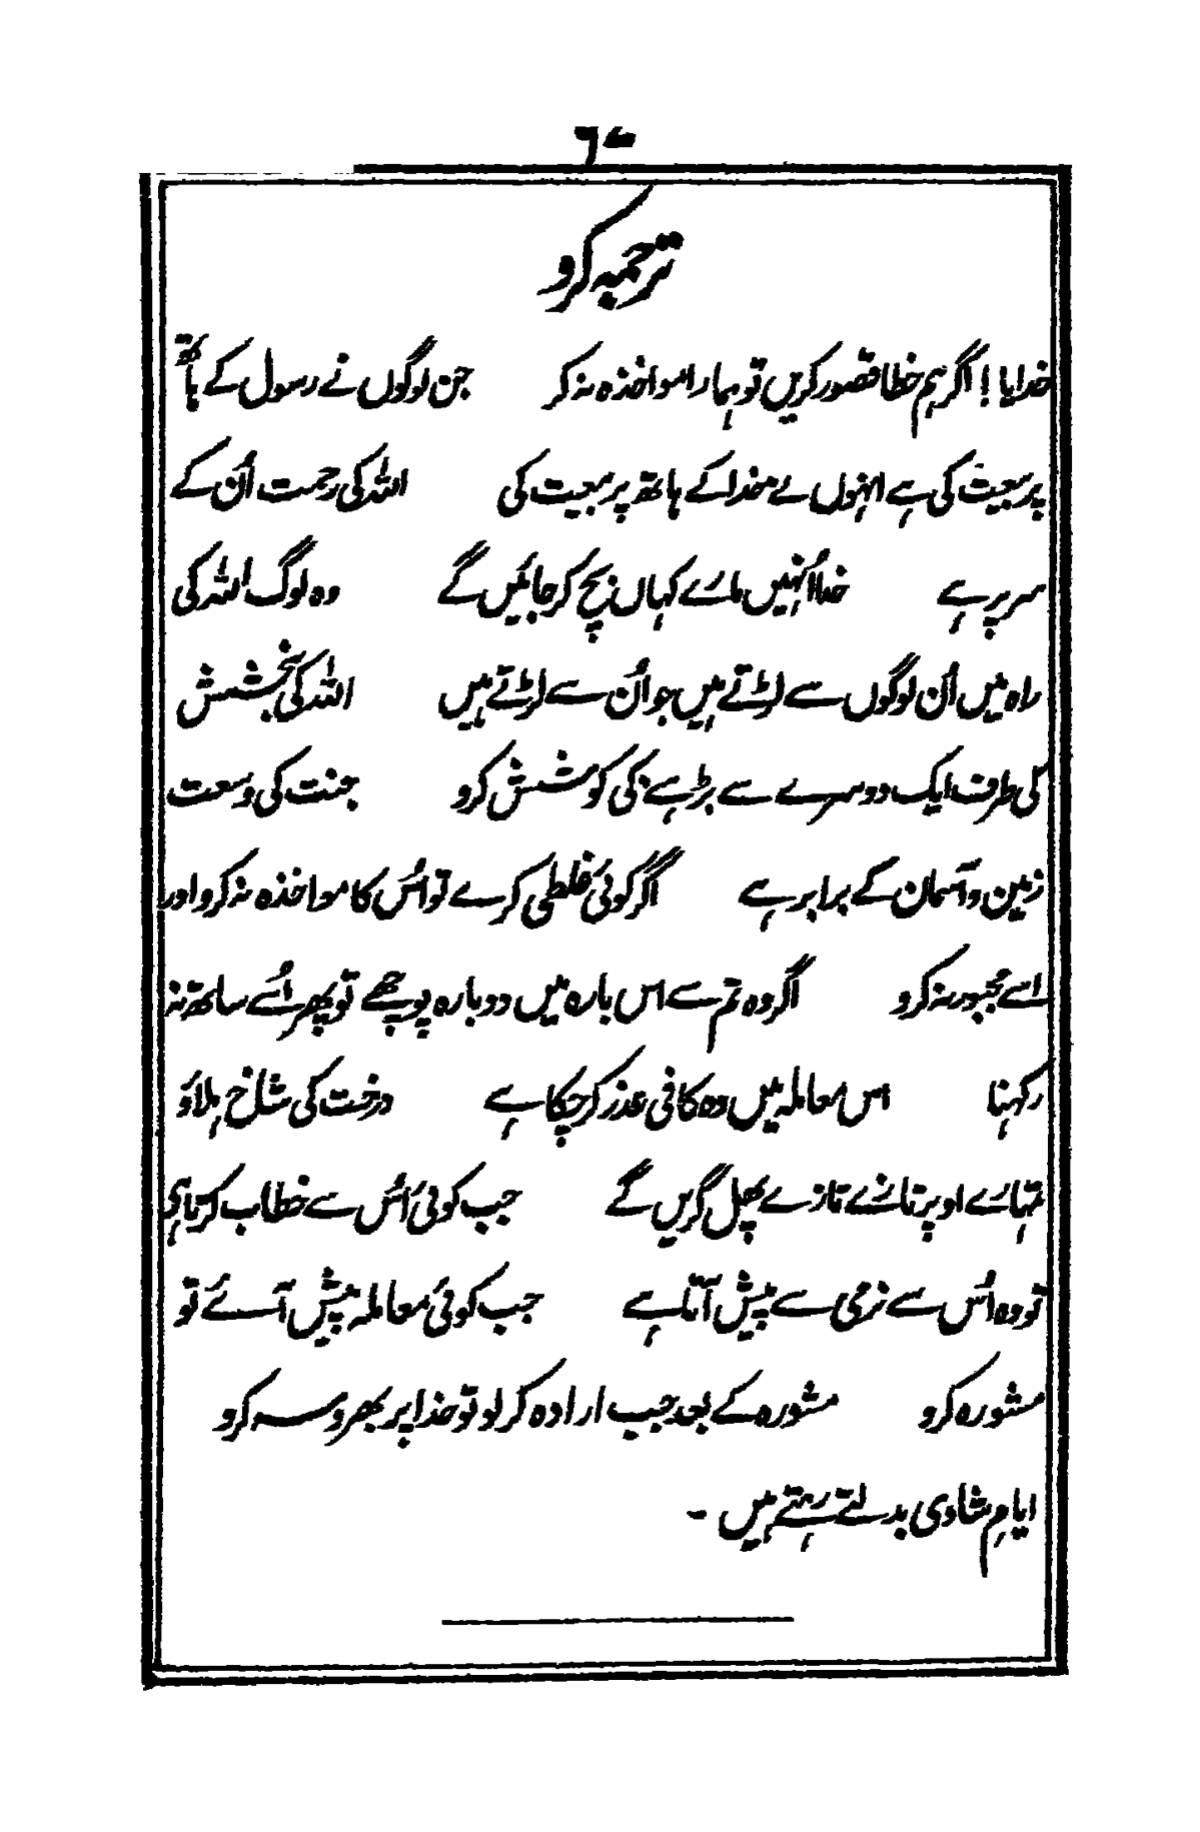 ۶۷
ترجمہ کرو
خدایا! اگر ہم خطا قصور کریں تو ہمارا مواخذہ نہ کر جن لوگوں نے رسول کے ہاتھ
پر بیعت کی ہے انہوں نے خدا کے ہاتھ پر بیعت کی اللہ کی رحمت اُن کے
سر پر ہے خدا اُنہیں مارے کہاں بچ کر جائیں گے وہ لوگ اللہ کی
راہ میں اُن لوگوں سے لڑتے ہیں جو اُن سے لڑتے ہیں اللہ کی بخشش
کی طرف ایک دوسرے سے بڑہنے کی کوشش کرو جنت کی وسعت
زمین و آسمان کے برابر ہے اگر کوئی غلطی کرے تو اُس کا مواخذہ نہ کرو اور
اسے مجبور نہ کرو اگر وہ تم سے اس بارہ میں دوبارہ پوچھے تو پھر اُسے ساتھ نہ
رکہنا اس معاملہ میں وہ کافی عذر کر چکا ہے درخت کی شاخ ہلاؤ
تمہارے اوپر تازے تازے پھل گریں گے جب کوئی اُس سے خطاب کرتا ہے
تو وہ اُس سے نرمی سے پیش آتا ہے جب کوئی معاملہ پیش آئے تو
مشورہ کرو مشورہ کے بعد جب ارادہ کر لو تو خدا پر بھروسہ کرو
ایامِ شادی بدلتے رہتے ہیں ۔